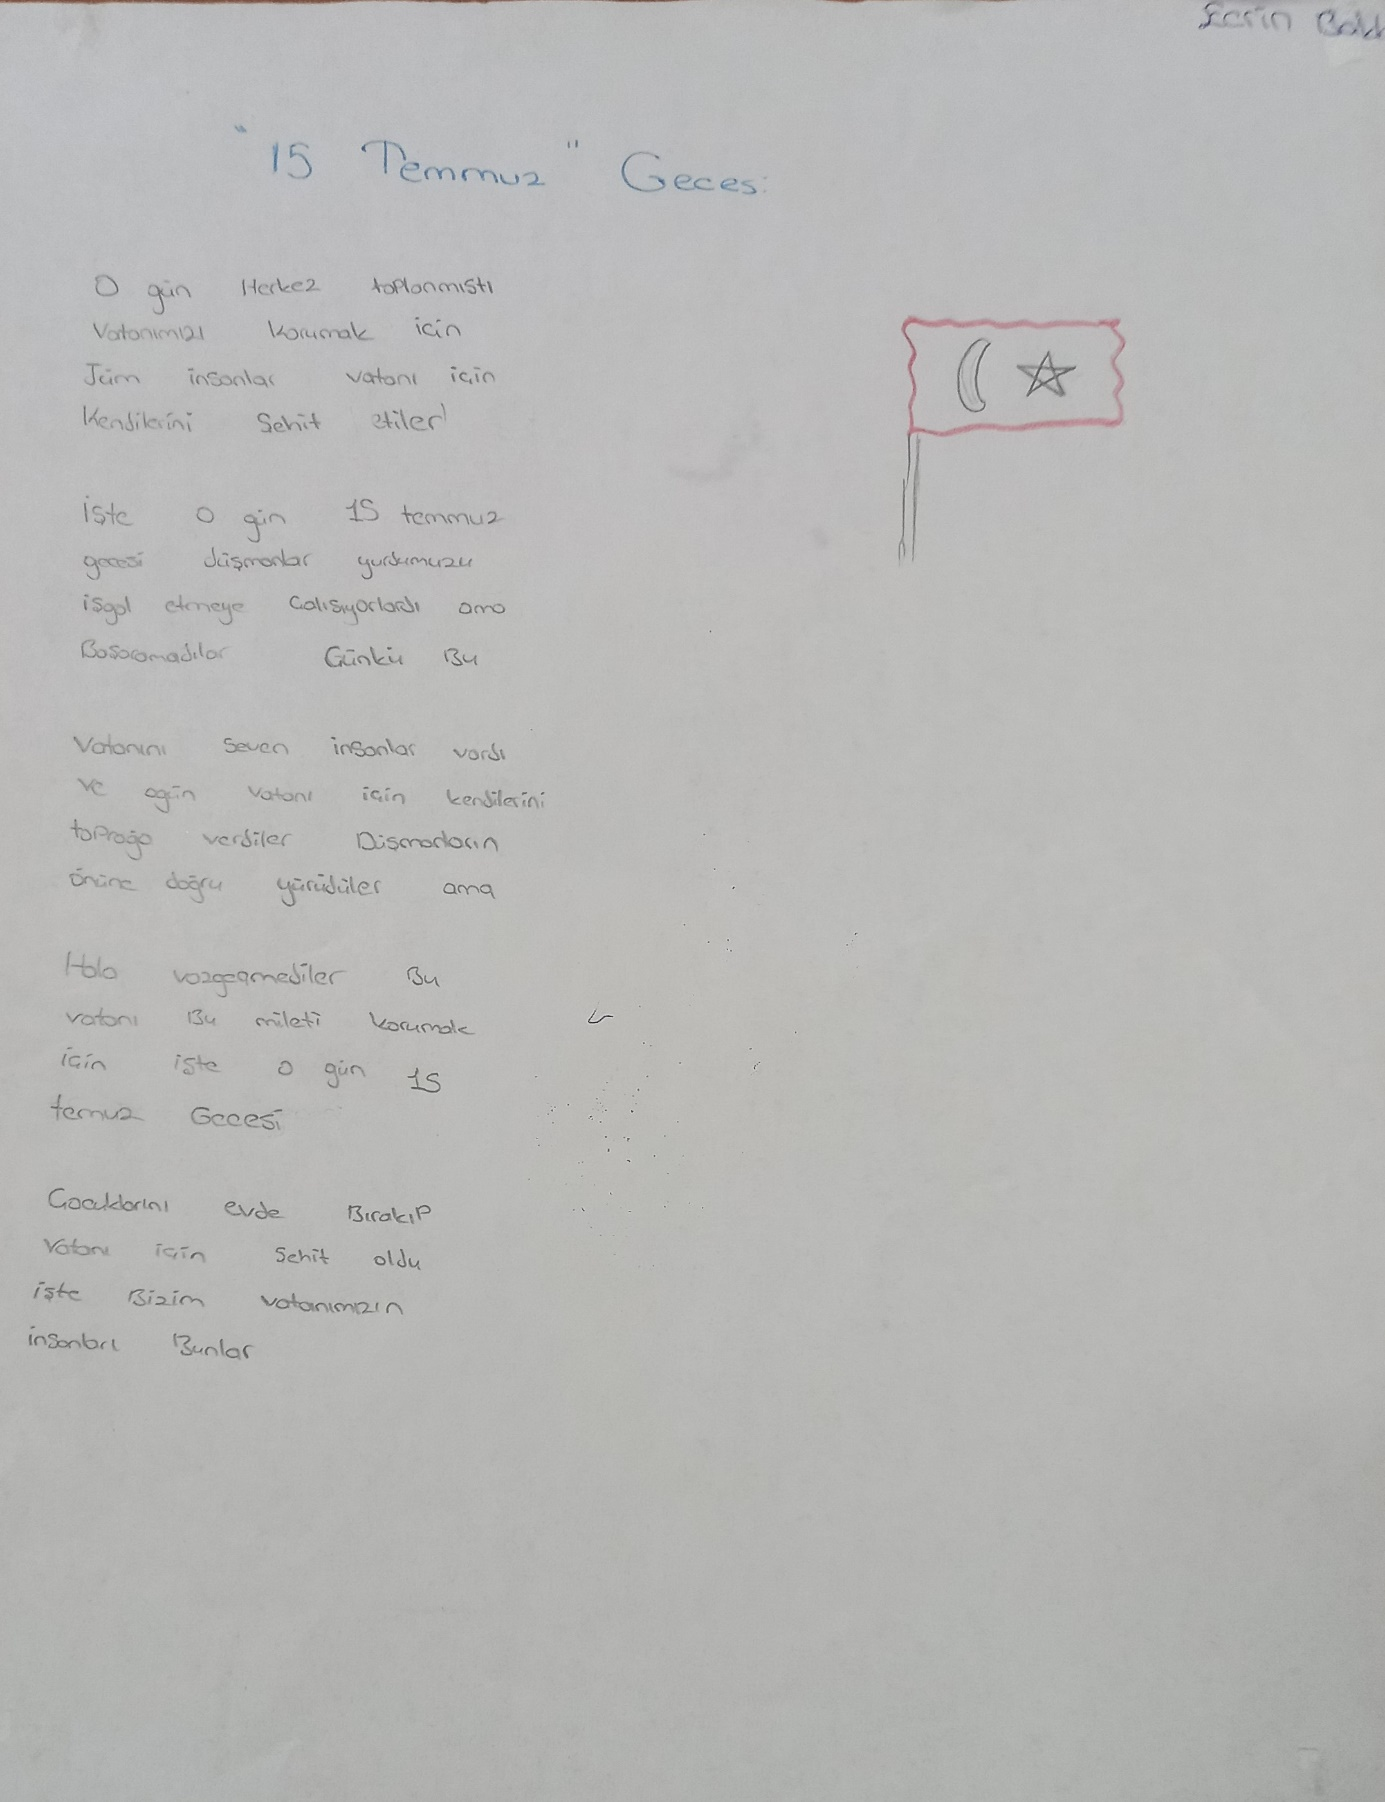 "15 Temmuz" Gecesi
O gün Herkez toplanmıstı
Vatanımızı Korumak için
Tüm insanlar vatanı için
Kendilerini Şehit etiler
İşte O gün 15 temmuz
gecesi düşmanlar yurdumuzu
işgal etmeye Calısıyorlardı ama
Başaramadılar Günkü Bu
Vatanını Seven insanlar vardı
ve ogün vatanı için kendilerini
toPrağa verdiler Düşmanların
önüne doğru yürüdüler ama
Hala vazgeçmediler Bu
vatanı Bu mileti korumak
için işte O gün 15
temuz Gecesi
Cocuklarını evde BırakıP
Vatanı için Sehit oldu
işte Bizim vatanımızın
insanları Bunlar